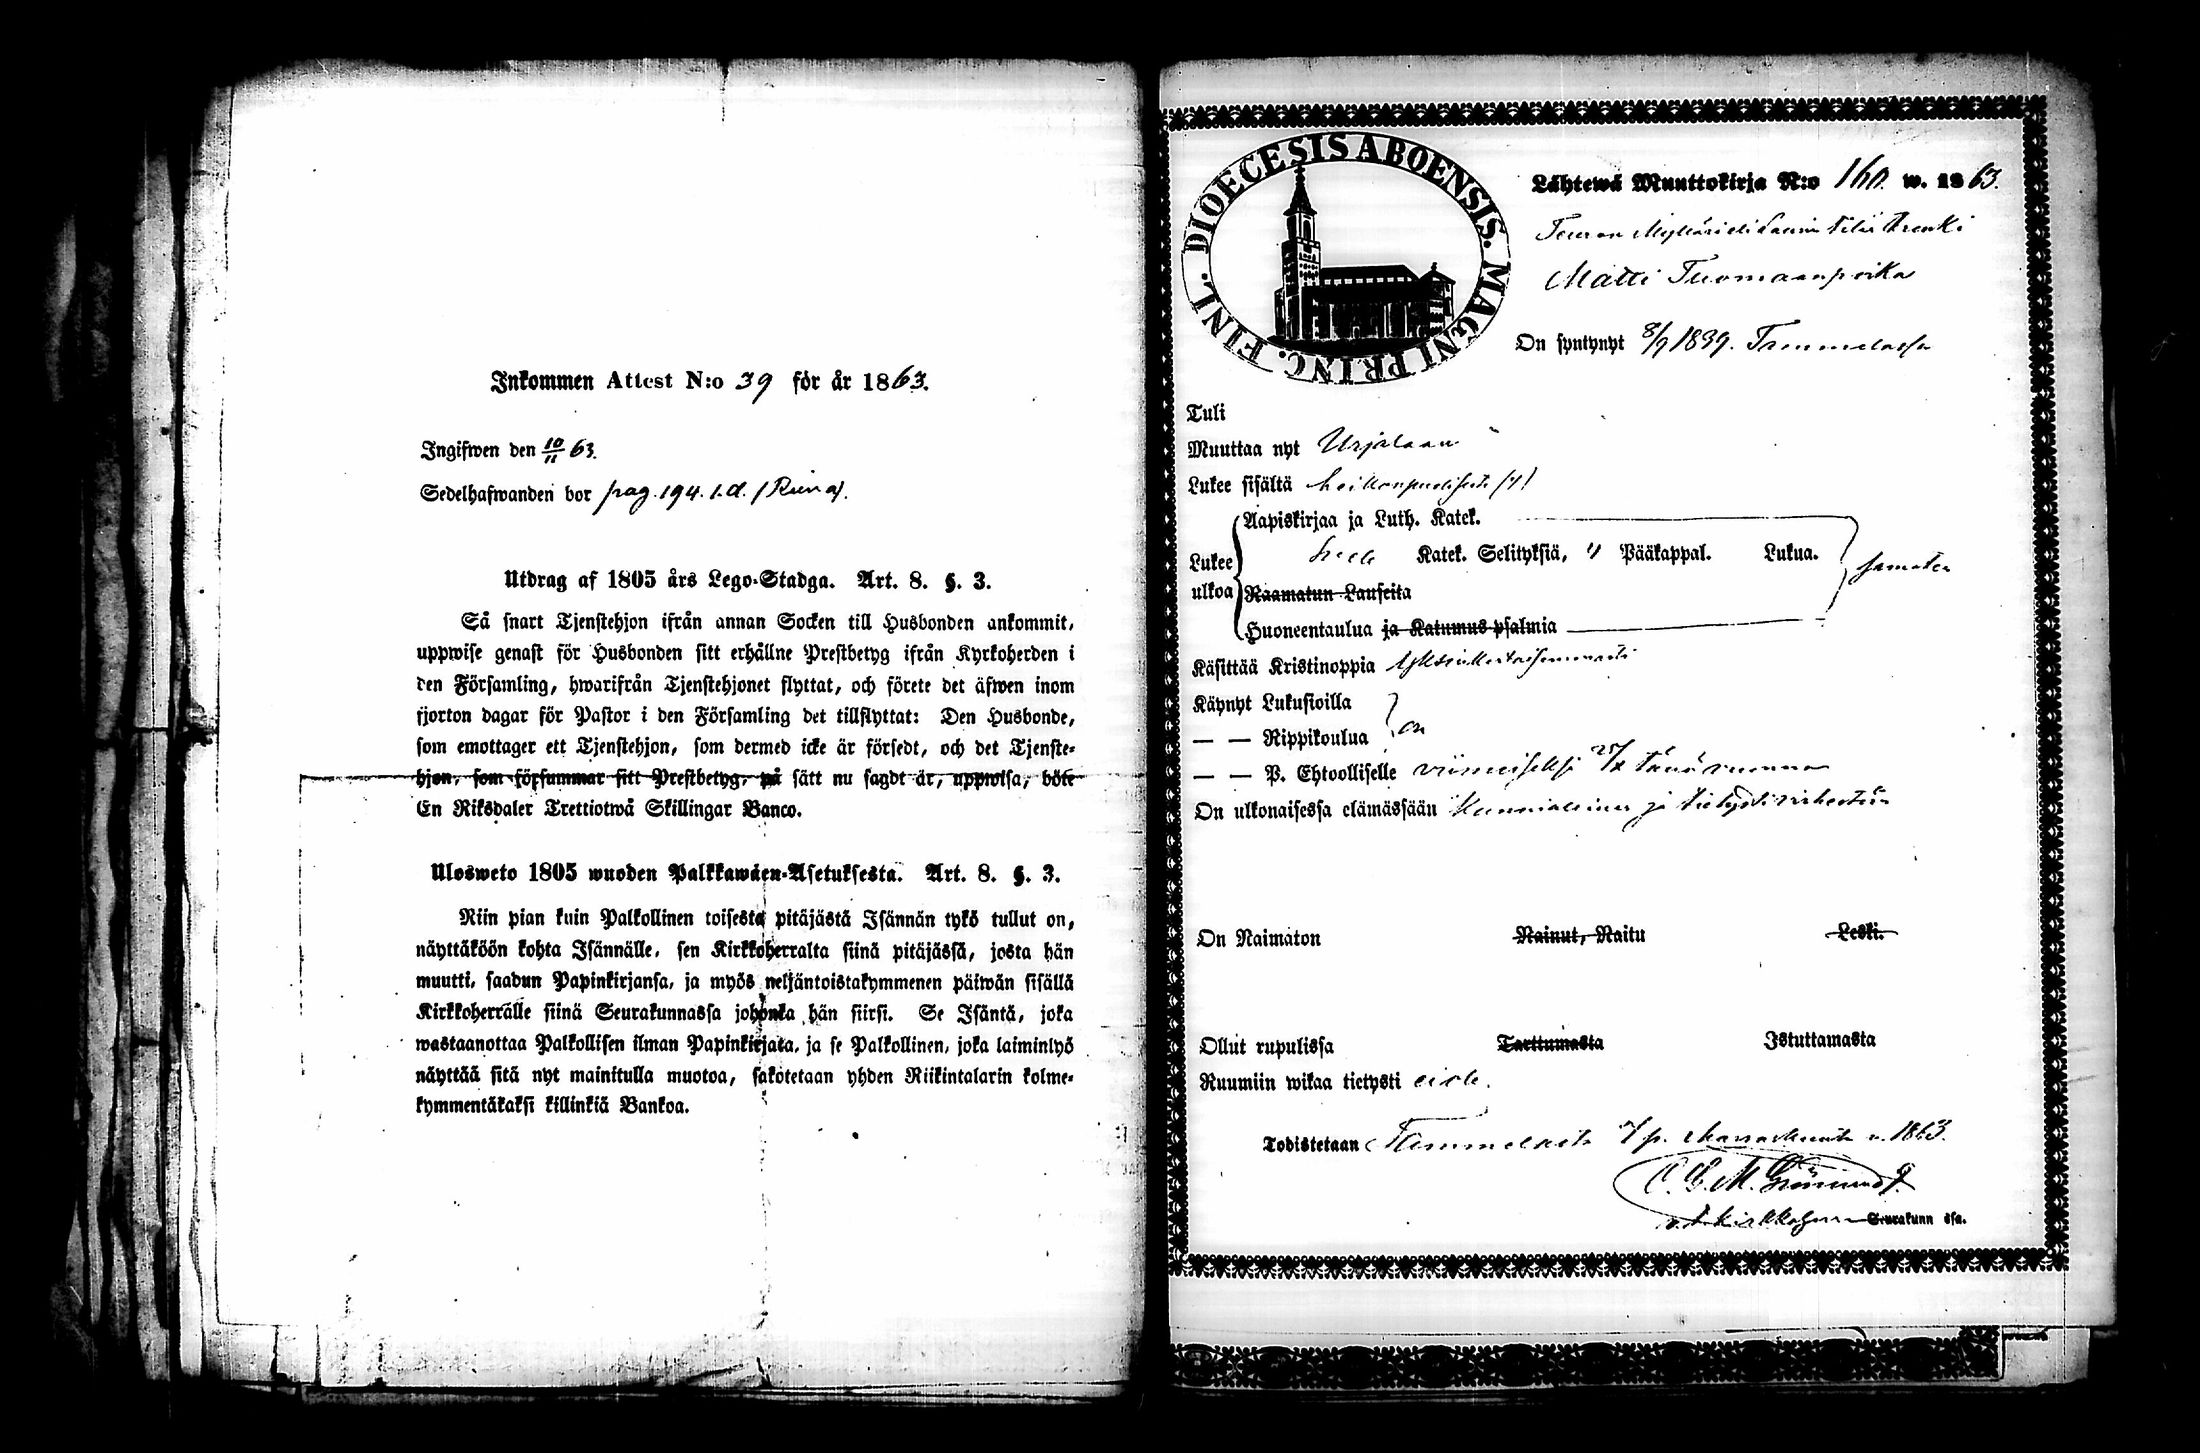 Inkommen Attest N:o 39 för år 1863.
Ingifwen den 10/11 63.
Sedelhafwanden bor pag. 194. 1.d. (Riina).
Utdrag af 1805 års Lego-Stadga. Art. 8. §. 3.
Så snart Tjenstehjon ifrån annan Socken till Husbonden ankommit,
uppwise genast för Husbonden sitt erhållne Prestbetyg ifrån Kyrkoherden i
den Församling, hwarifrån Tjenstehjonet flyttat, och förete det äfwen inom
fjorton dagar för Pastor i den Församling det tillflyttat: Den Husbonde,
som emottager ett Tjenstehjon, som dermed icke är försedt, och det Tjenste-
hjon, som försummar sitt Prestbetyg, på sätt nu sagdt är, uppwisa, böte
En Riksdaler Trettiotwå Skillingar Banco.
Ulosweto 1805 wuoden Palkkawäen-Asetuksesta. Art. 8. §. 3.
Niin pian kuin Palkollinen toisesta pitäjästä Isännän tykö tullut on,
näyttäköön kohta Isännälle, sen Kirkkoherralta siinä pitäjässä, josta hän
muutti, saadun Papinkirjansa, ja myös neljäntoistakymmenen päiwän sisällä
Kirkkoherralle siinä Seurakunnassa johonka hän siirsi. Se Isäntä, joka
wastaanottaa Palkollisen ilman Papinkirjata, ja se Palkollinen, joka laiminlyö
näyttää sitä nyt mainitulla muotoa, sakotetaan yhden Riikintalarin kolme-
kymmentäkaksi killinkiä Bankoa.
DIOECESIS ABOENSIS. MAGNI PRINC. FINL.
Lähtewä Muuttokirja N:o 160. w. 1863.
Renki
Matti Tuomaanpoika
On syntynyt 8/9 1839. Tammelassa
Tuli
Muuttaa nyt Urjalaan
Lukee sisältä heikonpuolisesti
Aapiskirjaa ja Luth. Katek.
Lukee Katek. Selityksiä, Pääkappal. Lukua.
ulkoa Raamatun Lauseita
Huoneentaulua ja Katumus-psalmia
Käsittää Kristinoppia yksinkertaisemmasti
Käynyt Lukusioilla
— — Rippikoulua on
— — P. Ehtoolliselle viimeiseksi tänä vuonna
On ulkonaisessa elämässään kunniallinen ja tietysti virheetöin
On Naimaton Nainut, Naitu Leski.
Ollut rupulissa Tarttumasta Istuttamasta
Ruumiin wikaa tietysti ei ole.
Todistetaan Tammelasta p. Marraskuuta v. 1863.
Kirkkoherra Seurakunn ssa.